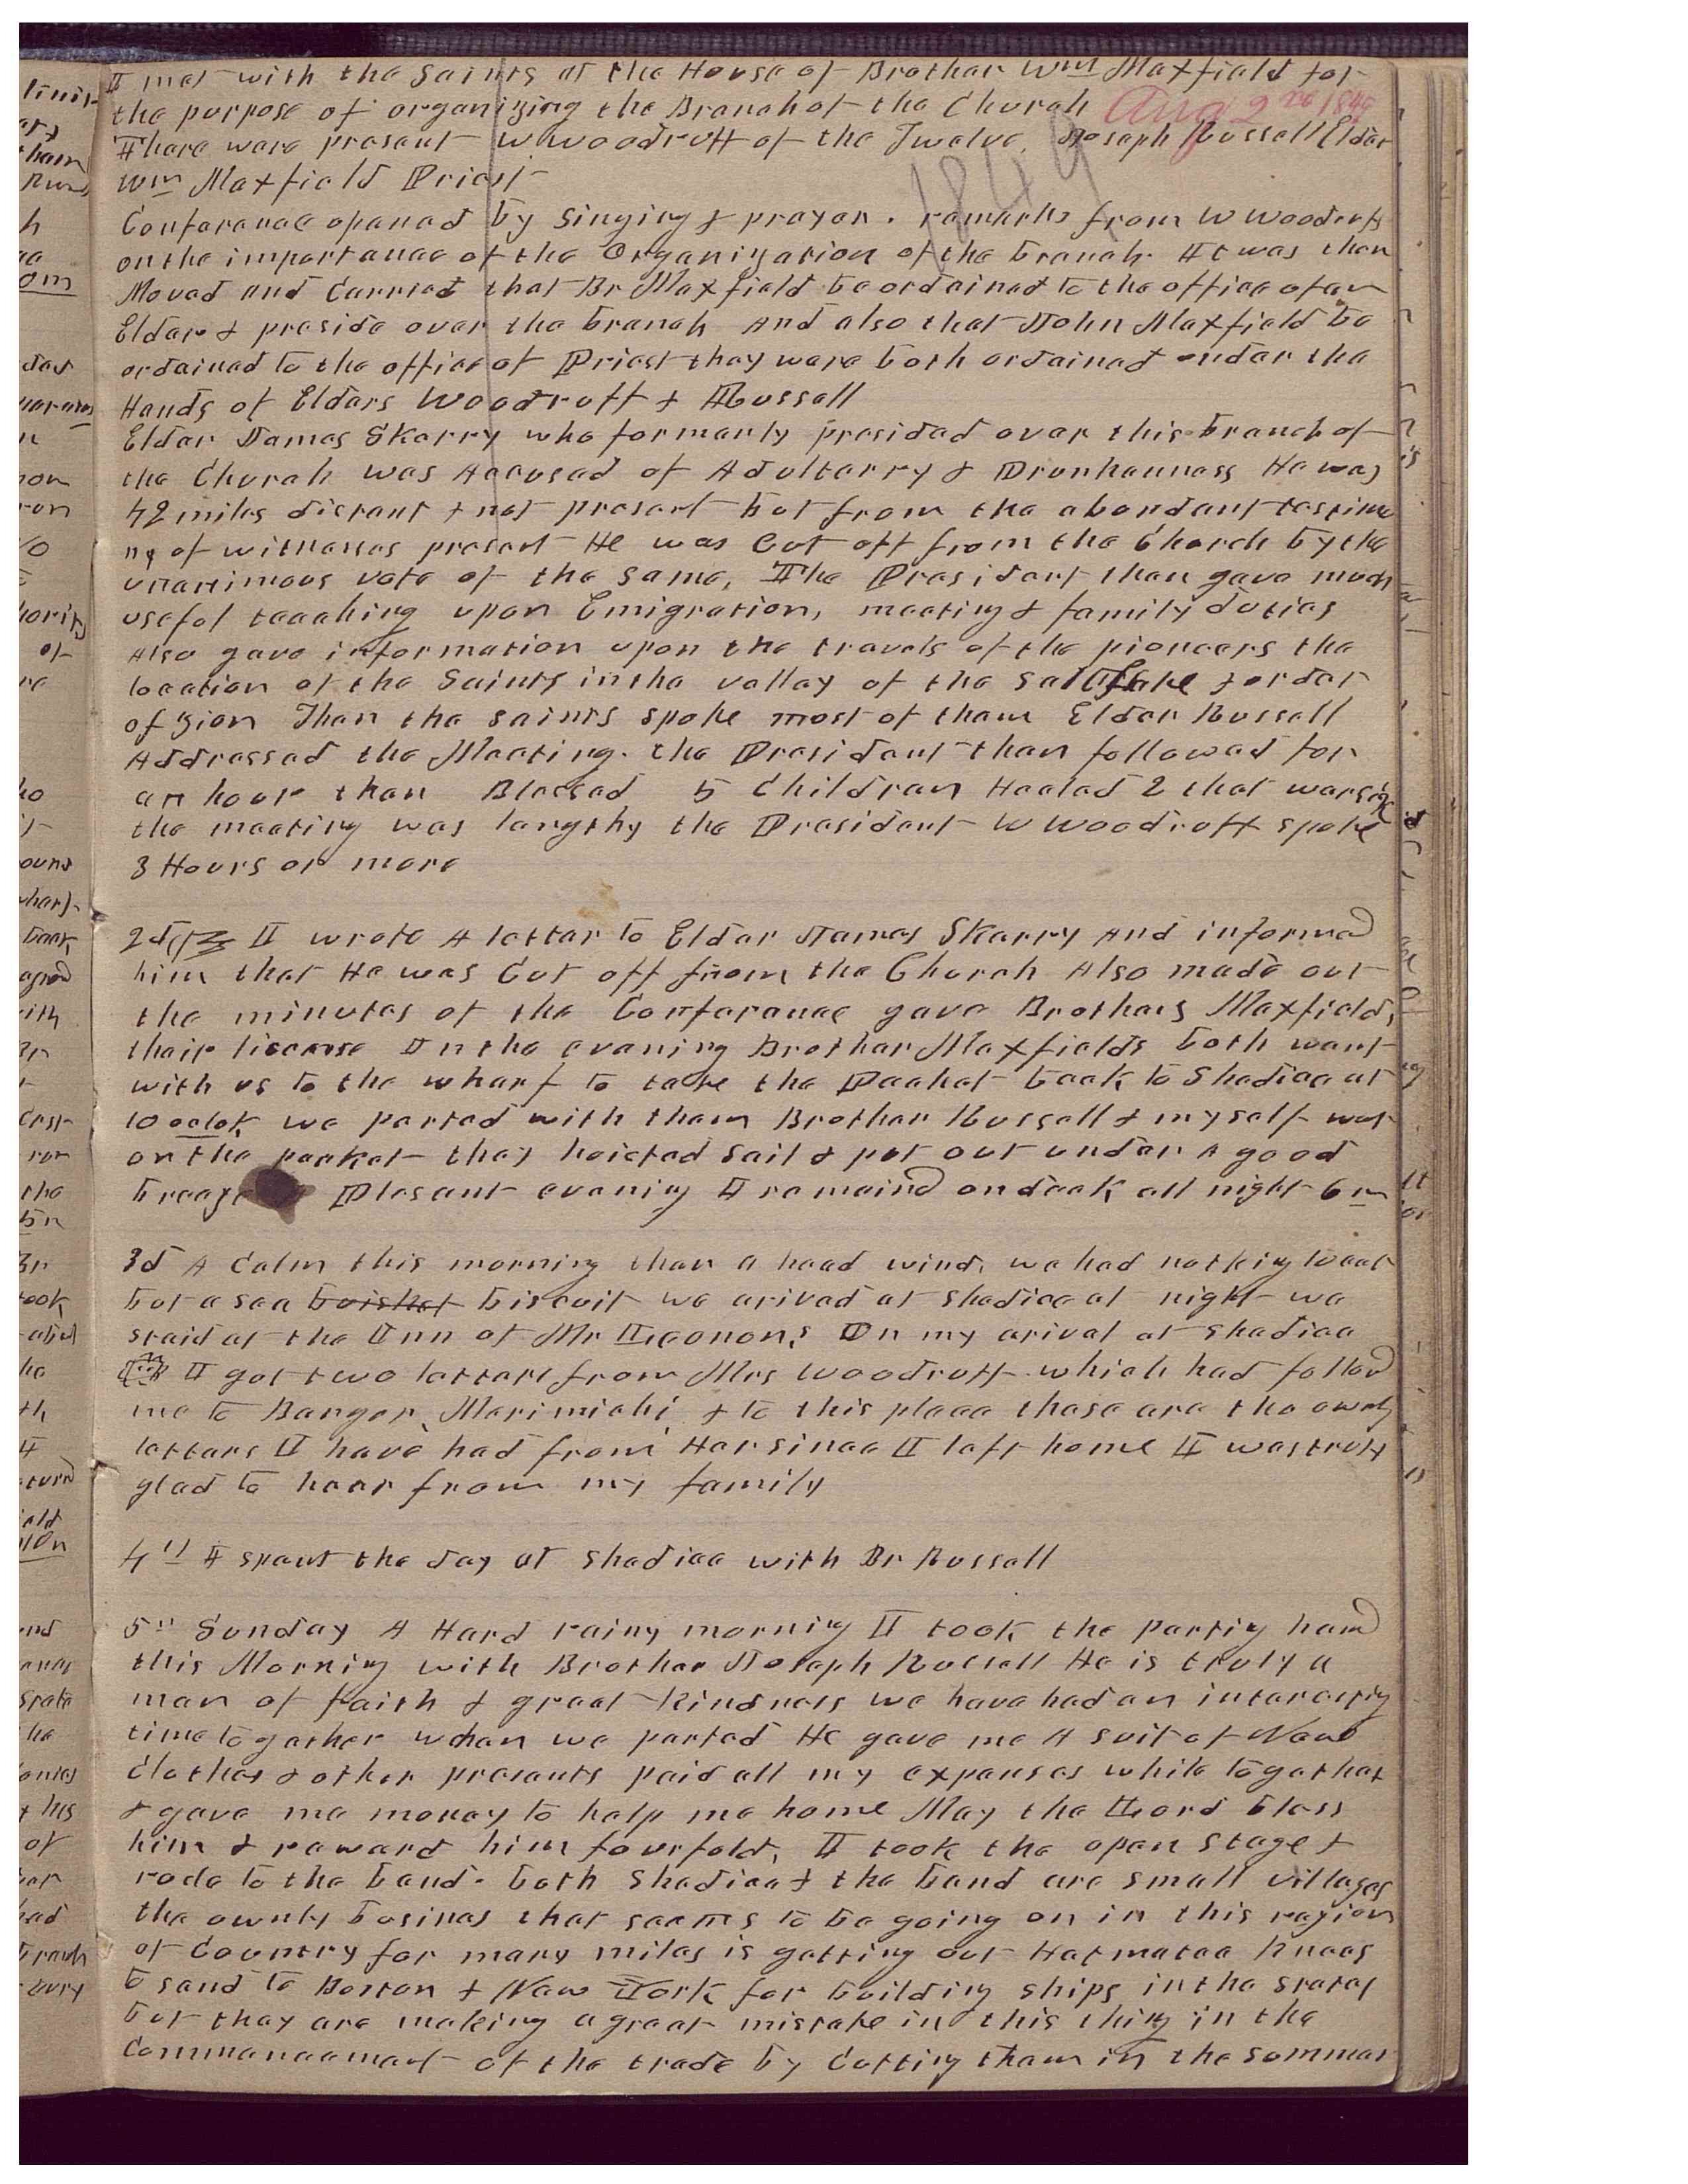 I met with the Saints at the House of Brother Wm Maxfield for
the purpose of organizing the Branch of the Church Aug 2nd 1849
There were present W Woodruff of the Twelve, Joseph Russell Elder
1849
Wm Maxfield Priest
Conferance opened by singing & prayer. remarks from W Woodruff
on the importance of the Organization of the branch. It was then
Moved and Carried that Br Maxfield be ordained to the office of an
Elder & preside over the branch And also that John Maxfield be
ordained to the office of Priest they were both ordained under the
Hands of Elders Woodruff & Russell
Elder James Skerry who formerly presided over this branch of
the Church was Accused of Adulterry & Drunkenness He was
42 miles distant & not present but from the abundant testimo
ny of witnesses present He was Cut off from the Church by the
unanimous vote of the same. The President then gave much
useful teaching upon Emigration, meeting & family duties
Also gave information upon the travels of the pioneers the
location of the Saints in the valley of the Salt Lake & order
of Zion Then the saints spoke most of them Elder Russell
Addressed the Meeting. the President then followed for
an hour then Blessed 5 Children Healed 2 that were sick
the meeting was lengthy the President W Woodruff spoke
3 Hours or more
2d I wrote A letter to Elder James Skerry And informed
him that He was Cut off from the Church Also made out
the minutes of the Conferance gave Brothers Maxfields
their license In the evening Brother Maxfields both went
with us to the wharf to take the Packet back to Shediac at
10 oclok we parted with them Brother Russell & myself went
on the packet they hoisted sail & put out under A good
breeze Plesant evening I remaind on deck all night 6 m
3d A Calm this morning then a head wind, we had nothing to eat
but a sea buisket biscuit we arived at Shediac at night we
staid at the Inn of Mr Leonons On my arival at Shediac
I got two letters from Mrs Woodruff which had followd
me to Bangor, Merimichi & to this place these are the ownly
letters I have had from Her since I left home I was truly
glad to hear from my family
4th I spent the day at Shediac with Br Russell
5th Sunday A Hard rainy morning I took the parting hand
this Morning with Brother Joseph Russell He is truly a
man of faith & great kindness we have had an interesting
time together when we parted He gave me A suit of New
Clothes & other presents paid all my expenses while together
& gave me money to help me home May the Lord bless
him & reward him fourfold, I took the open stage &
rode to the bend. both Shediac & the bend are small villages
the ownly business that seems to be going on in this region
of Country for many miles is getting out Hacmatac knees
to send to Boston & New York for building ships in the states
but they are making a great mistake in this thing in the
Commencement of the trade by Cutting them in the sommer